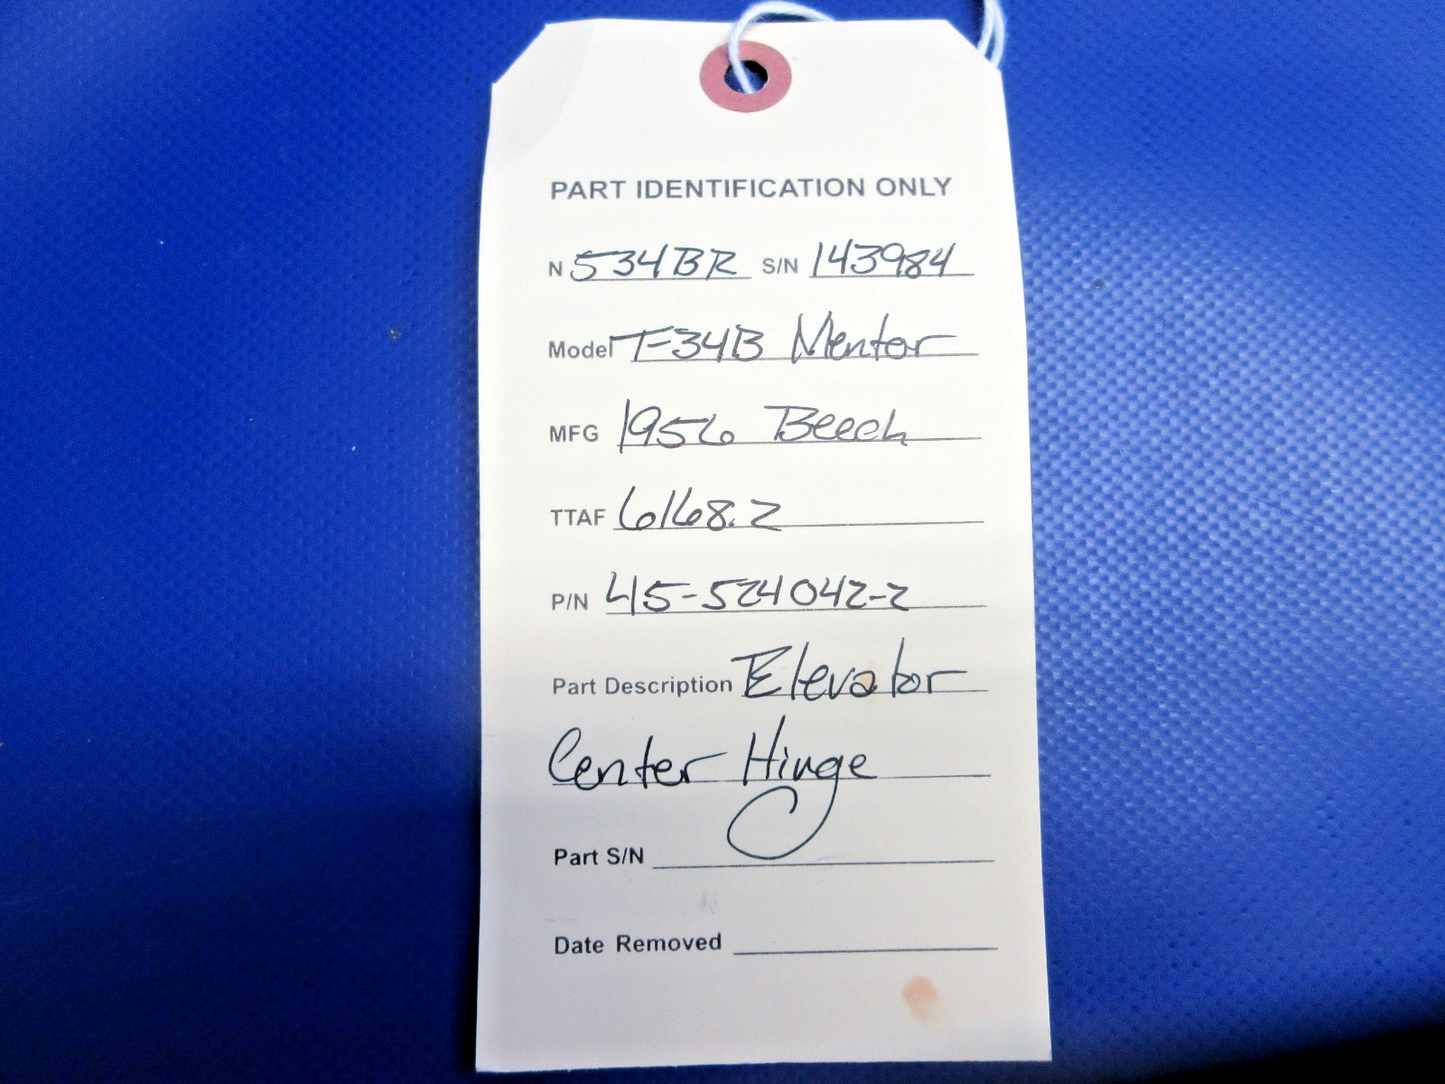 PART IDENTIFICATION ONLY
N 534BR S/N 143984
Model T-34B Mentor
MFG 1956 Beech
TTAF 6168.2
P/N 45-524042-2
Part Description Elevator
Center Hinge
Part S/N
Date Removed